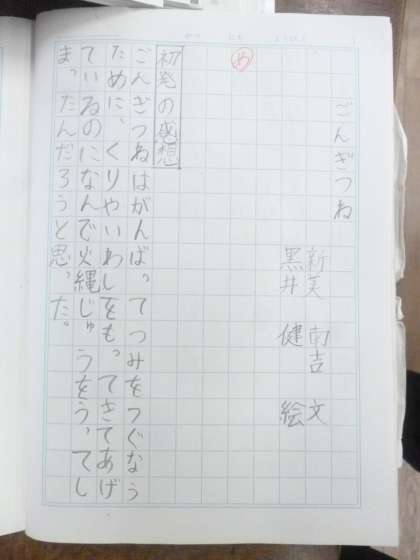 ごんぎつね
新美 南吉 文
黒井 健 絵
め
初発の感想
ごんぎつねはがんばってつみをつぐなう
ために、くりやいわしをもってきてあげ
ているのになんで火縄じゅうをうってし
まったんだろうと思った。